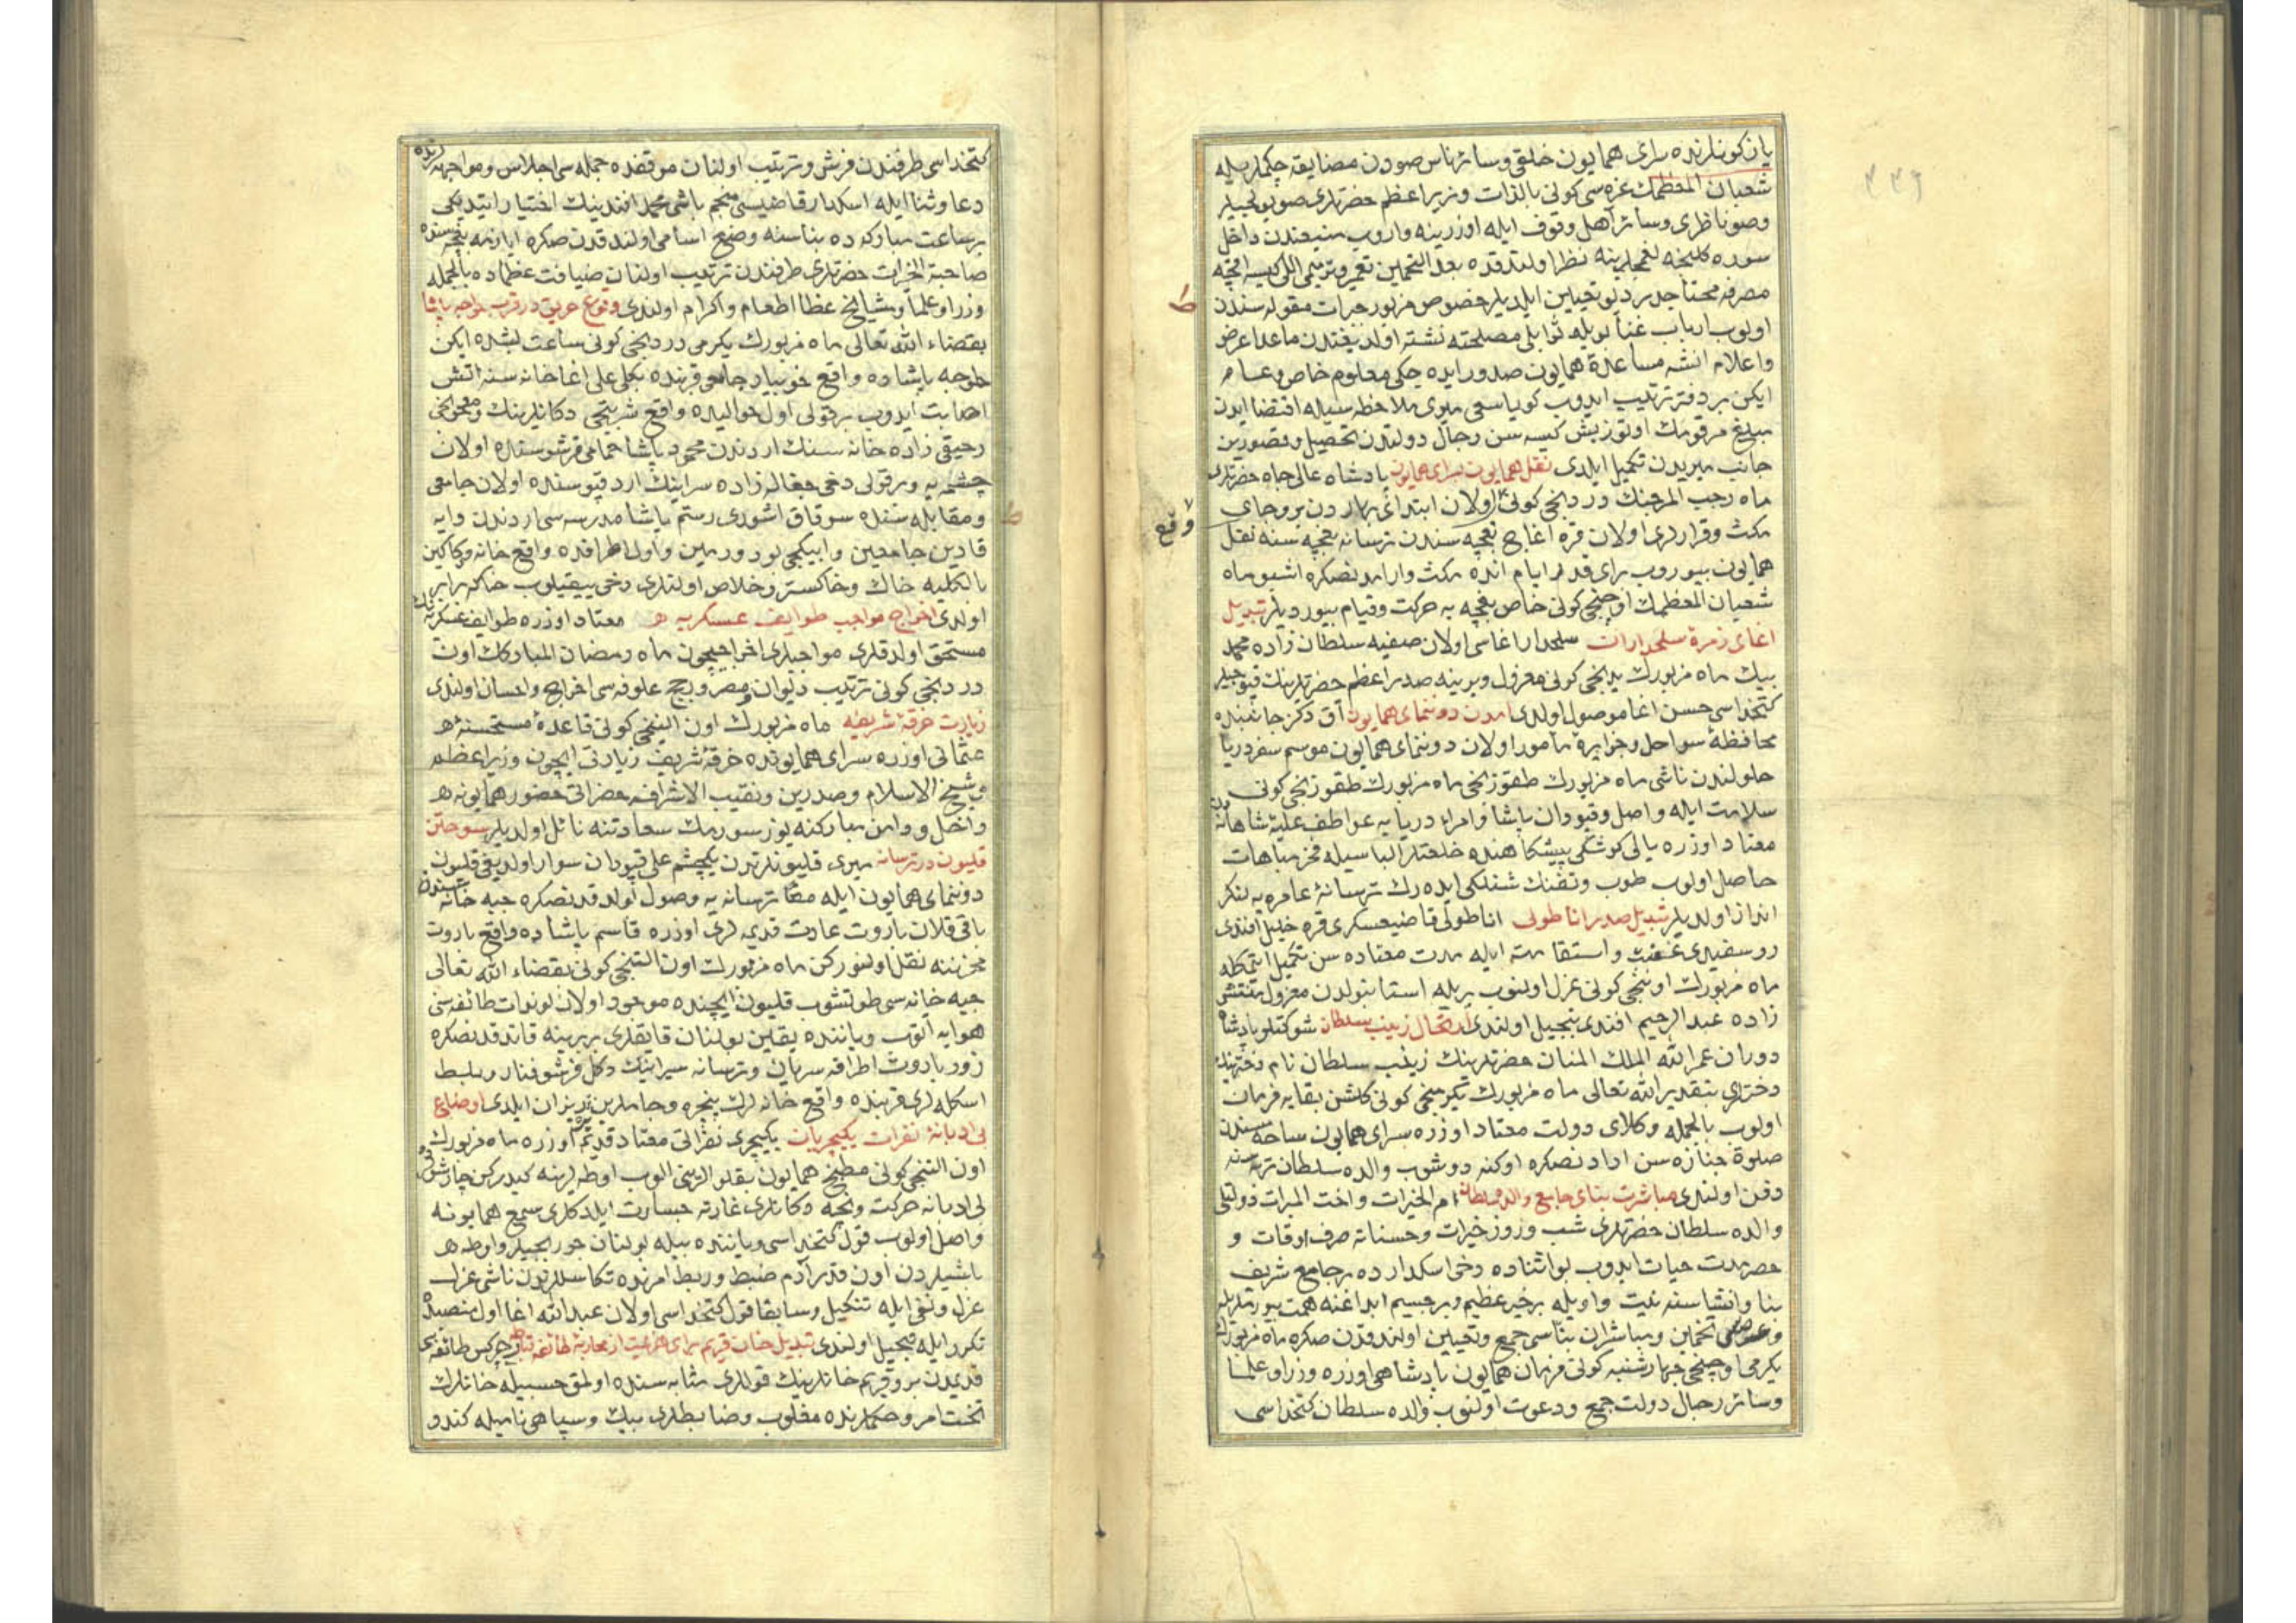 ۳۳۹
یاز کونلرنده سرای همایون خلقی و سائر ناس صودن مضایقه چکملریله
شعبان المعظمك غره سی کونی بالذات وزیر اعظم حضرتلری صویولجیلر
وصو ناظری وسائر اهل وقوف ایله اوزرینه واروب منبعندن داخل
سوره کلنجه لغملرینه نظر اولندقده بعد التخمین تعمیر و ترمیمی اللی کیسه اقچه
مصرفه محتاجدر دیو تعیین ایلدیلر خصوص مزبور خیرات مقوله سندن
اولوب ارباب غنا بویله ثوابلی مصلحته تشنه اولدیغندن ماعدا عرض
واعلام انشه مساعدۀ همایون صدور ایده جکی معلوم خاص و عام
ایکن بر دفتر ترتیب ایدوب کویا سعی میری ملاحظه سیله اقتضا ایدن
مبلغ مرقومك اوتوز بش کیسه سن رجال دولتدن تحصیل و قصورین
جانب میریدن تکمیل ایلدی نقل همایون سرای همایون پادشاه عالی جاه حضرتلری
ماه رجب المرجبك دردنجی کونی اولان ابتدای بهاردن بروجای
وقع
مکث و قرارلری اولان قره اغاج بغچه سندن ترسانه بغچه سنه نقل
همایون بیوروب برای قدر ایام انده مکث و ارامدنصکره اشبو ماه
شعبان المعظمك اوچنجی کونی خاص بغچه یه حرکت و قیام بیوردیلر تبدیل
اغای زمرۀ سلحداران سلحدار اغاسی اولان صفیه سلطان زاده محمد
بیك ماه مزبورك یدنجی کونی معزول ویرینه صدر اعظم حضرتلرینك قپوجیلر
کتخداسی حسن اغا موصول اولدی امدن دوننمای همایون آق دکز جانبنده
محافظۀ سواحل و جزایره مامور اولان دوننمای همایون موسم سفر دریا
حلولندن ناشی ماه مزبورك طقوزنجی ماه مزبورك طقوزنجی کونی
سلامت ایله واصل و قپودان پاشا و امراء دریایه عواطف علیۀ شاهانه
معتاد اوزره یالی کوشکی پیشکاهنده خلعتلر الباسیله فخر مباهات
حاصل اولوب طوب و تفنك شنلکی ایده رك ترسانۀ عامره یه لنکر
انداز اولدیلر تبدیل صدر اناطولی اناطولی قاضیعسکری قره خلیل افندی
روسفیدی عفت و استقامت ایله مدت معتاده سن تکمیل ایتمکله
ماه مزبورك اوننجی کونی عزل اولنوب یریله استانبولدن معزول منتشی
زاده عبد الرحیم افندی تبجیل اولندی ارتحال زینب سلطان شوکتلو پادشاه
دوران عمر الله الملك المنان حضرتلرینك زینب سلطان نام دختر نیك
دخترلری بتقدیر الله تعالی ماه مزبورك یکرمنجی کونی کلشن بقایه خرمان
اولوب بالجمله وکلای دولت معتاد اوزره سرای همایون ساحه سندن
صلوة جنازه سن ادادنصکره اوکنه دوشوب والده سلطان تربه سنه
دفن اولندی مباشرت بنای جامع والده سلطان ام الخیرات و اخت المبرات دولتلی
والده سلطان حضرتلری شب و روز خیرات و حسناته صرف اوقات و
حصر مدت حیات ایدوب بو اثناده دخی اسکدارده بر جامع شریف
بنا وانشاسنه نیت و اویله بر خیر عظیم و بر جسیم ابداغنه همت بیورتلریله
تخمین ومباشران بناسی جمع و تعیین اولندقدن صکره ماه مزبورك
یکرمی اوچنجی چهارشنبه کونی فرمان همایون پادشاهی اوزره وزرا و علما
وسائر رجال دولت جمع و دعوت اولنوب والده سلطان کتخداسی
کتخداسی طرفندن فرش و ترتیب اولنان موقفده جمله سی اجلاس و مواجهه لرنده
دعا و ثنا ایله اسکدار قاضیسی منجم باشی محمد افندینك اختیار ایتدیکی
بر ساعت مبارکه ده بناسنه وضع اساس اولندقدن صکره ایازمه بغچه سنده
صاحبة الخیرات حضرتلری طرفندن ترتیب اولنان ضیافت عظماده بالجمله
وزرا و علما و مشایخ عظا اطعام و اکرام اولندی وقوع حریق در قرب خواجه پاشا
بقضاء الله تعالی ماه مزبورك یکرمی دردنجی کونی ساعت بشده ایکن
خواجه پاشاده واقع خوبیار جامعی قربنده بکلی علی اغا خانه سنه اتش
اصابت ایدوب بر قولی اول حوالیده واقع شربتجی دکانلرینك ومعجونجی
رحیقی زاده خانه سنك اردندن محمود پاشا حمامی قرشوسنده اولان
چشمه یه و بر قولی دخی جغاله زاده سراینك ارد قپوسنده اولان جامعی
ومقابله سنده سوقاق اشوری رستم پاشا مدرسه سی اردندن دایه
قادین جامعین و ایپکجی بودورمین واول اطرافده واقع خانه و دکاکین
بالکلیه خاك و خاکستر و خلاص اولنلری دخی ییقیلوب خاکه برابر
اولدی اخراج مواجب طوایف عسکریه معتاد اوزره طوایف عسکریه نك
مستحق اولدقلری مواجبلری اخراجیچون ماه رمضان المبارکك اون
دردنجی کونی ترتیب دیوان و مصر و رجج علوفه سی اخراج و احسان اولندی
زیارت خرقۀ شریفه ماه مزبورك اون التنجی کونی قاعدۀ مستحسنۀ
عثمانی اوزره سرای همایونده خرقۀ شریف زیارتی ایچون وزیر اعظم
و شیخ الاسلام و صدرین و نقیب الاشراف حضراتی حضور همایونه
داخل و دامن مبارکنه یوز سورمك سعادتنه نائل اولدیلر سوختن
قلیون در ترسانه میری قلیونلرندن یکچشم علی قپودان سوار اولدیغی قلیون
دوننمای همایون ایله معا ترسانه یه وصول اولدقدنصکره جبه خانه سندن
باقی قلان باروت عادت قدیمه لری اوزره قاسم پاشاده واقع باروت
مخزننه نقل اولنورکن ماه مزبورك اون التنجی کونی بقضاء الله تعالی
جبه خانه سی طوتشوب قلیون ایچنده موجود اولان لوندات طائفه سنی
هوایه اتوب ویاننده یقین بولنان قایقلری بربرینه قاتدقدنصکره
زور باروت اطرافه سریان و ترسانه سراینك دکل قرشو فنار و بلط
اسکله لری قربنده واقع خانه لرك پنجره و جاملرین ریزان ایلدی اوضاع
بی ادبانۀ نفرات یکیچریان یکیچری نفراتی معتاد قدیم اوزره ماه مزبورك
اون التنجی کونی مطبخ همایون بقلوالرینی الوب اوطه لرینه کیدرکن چارشوده
بی ادبانه حرکت و نیجه دکانلری غارته جسارت ایلدکلری سمع همایونه
واصل اولوب قول کتخداسی ویاننده بیله بولنان چوربجیلر و اوطه
باشیلردن اون قدر آدم ضبط و ربط امرنده تکاسللرندن ناشی عزل
عزل و نفی ایله تنکیل و سابقا قول کتخداسی اولان عبد الله اغا اول منصبده
تکرار ایله تبجیل اولندی تبدیل خان قریم برای هزیمت از محاربۀ طائفۀ چرکس طائفه سی
قدیمدن برو قریم خانلرینك قوللری مثابه سنده اولمق حسبیله خانلرك
تحت امر و حکملرنده مغلوب و ضابطلری بیك و سپاهی نامیله کندو